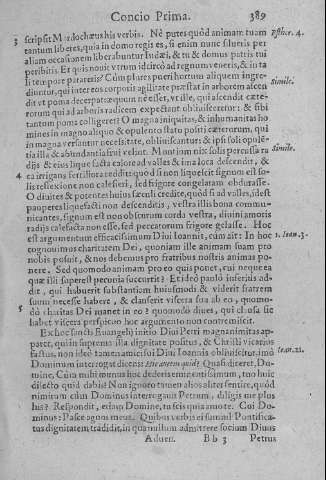 Concio Prima. 389
3 scripsit Mardochæus his verbis. Ne putes quòd animam tuam Esther. 4.
tantum liberes, quia in domo regis es, si enim nunc silueris per
aliam occasionem liberabuntur Iudæi, & tu & domus patris tui
peribitis. Et quis nouit vtrum idcircò ad regnum veneris, & in ta
li tempore parareris? Cùm plures pueri hortum aliquem ingre-
diuntur, qui inter eos corporis agilitate præstat in arborem ascen Simile.
dit vt poma decerpat: æquum ne esset, vt ille, qui ascendit cæte-
rorum qui ad arboris radicem expectant obliuisceretur: & sibi
tantum poma colligeret? O magna iniquitas, & inhumanitas ho
mines in magno aliquo & opulento statu positi cæterorum, qui
in magna versantur necessitate, obliuiscantur: & ipsi soli opulē-
tia illa & abundantia frui velint. Montium nix solis percussa ra Simile.
dijs & eius lúque facta calore ad valles & ima loca descendit, &
4 ea irrigans fertiliora reddit: quòd si non liquescit signum est so-
lis reflexione non calefieri, sed frigore congelatam obdurasse.
O diuites & potentes huius sæculi credite, quòd si ad valles, idest
pauperes liquefacti non descenditis, vestra illis bona commu-
nicantes, signum est non obscurum corda vestra, diuini amoris
radijs calefacta non esse, sed peccatorum frigore gelasse. Hoc
est argumentum efficacissimum Diui Ioannis, cùm ait: In hoc 1. Ioan. 3.
cognouimus charitatem Dei, quoniam ille animam suam pro
nobis posuit, & nos debemus pro fratribus nostris animas po-
nere. Sed quomodo animam pro eo quis ponet, rui nequé ea
quæ illi superest pecunia succurrit? Et ideò paulò inferiùs ad-
dit, qui habuerit substantiam huius modi & viderit fratrem
suum necesse habere, & clauserit viscera sua ab eo, quomo-
5 dò charitas Dei manet in eo? quomodò diues, qui clausa sic
habet viscera perspicuo hoc argumento non contremiscit.
Ex hoc sancti Euangelij initio Diui Petri magnanimitas ap-
paret, qui in suprema illa dignitate positus, & Christi vicarius
factus, non ideò tamen amici sui Diui Ioannis obliuiscitur, imò
Dominum interrogat dicens: Hic autem quid? Quasi diceret, Do- Ioan. 21.
mine, Cùm mihi munus hoc dederis eminentissimum, tuo huic
dilecto quid dabis? Non ignoro tamen alios aliter sentire, quòd
nimirum cùm Dominus interrogauit Petrum, diligis me plus
his? Respondit, etiam Domine, tu scis quia amo te. Cui Do-
minus: Pasce agnos meos. Quibus verbis ei summi Pontifica-
tus dignitatem tradidit, in qua nullum admittere socium Diuus
Aduen. Bb 3 Petrus